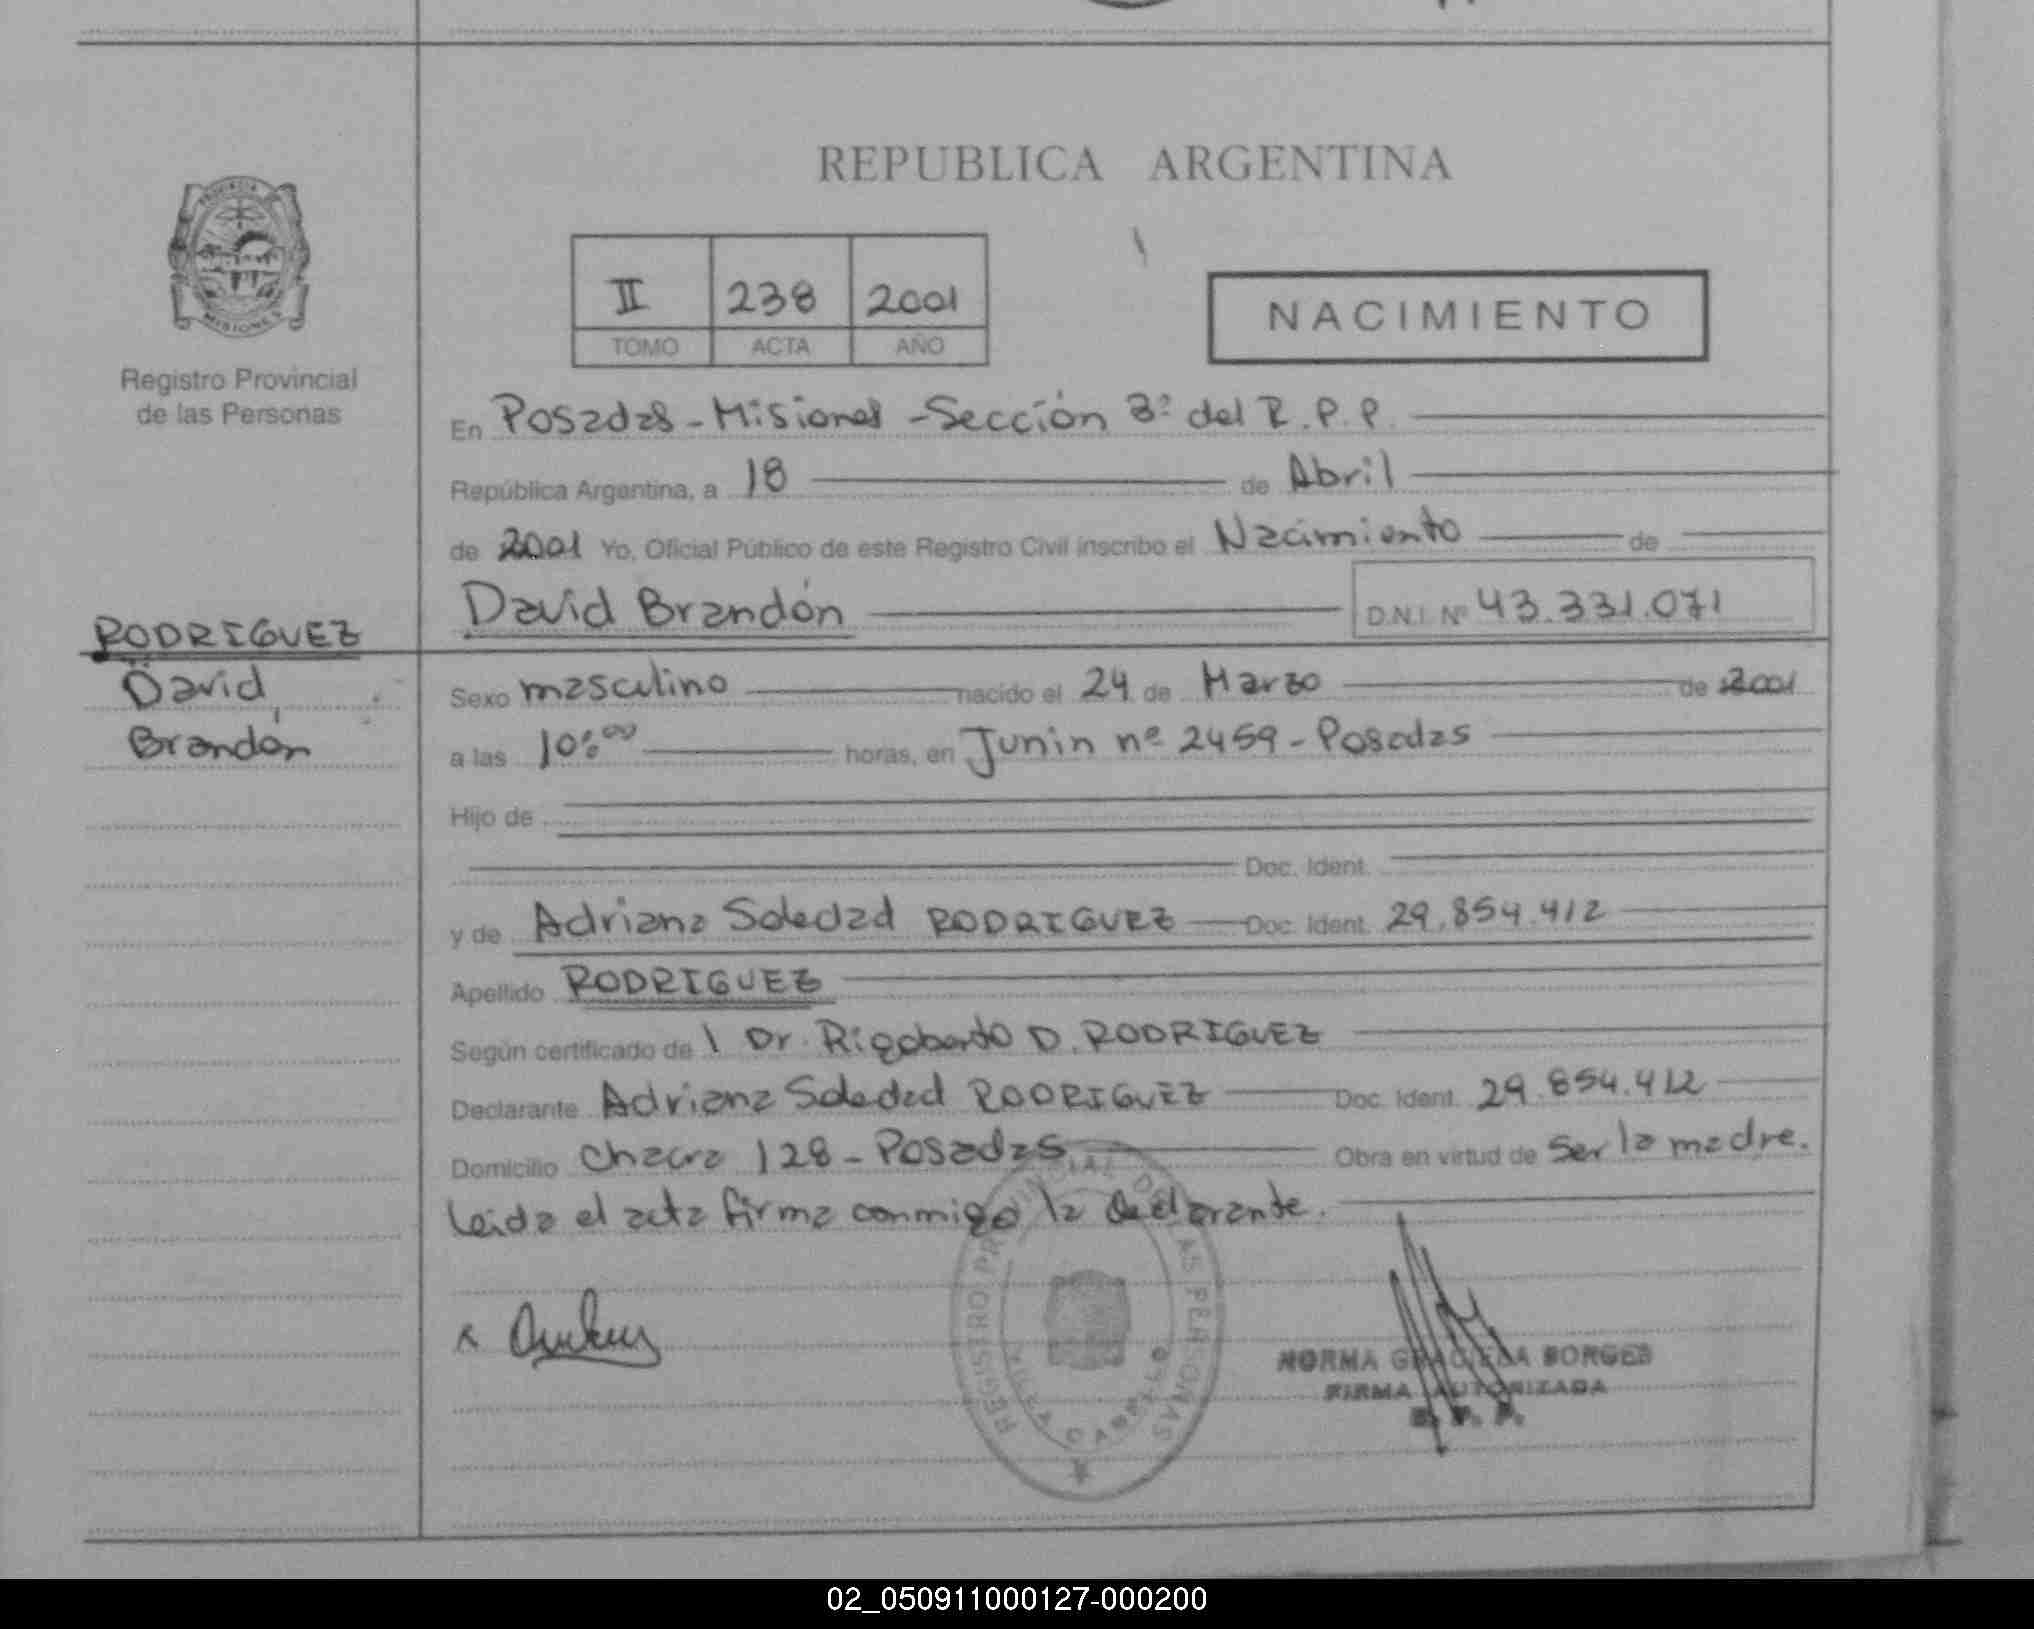 REPUBLICA ARGENTINA
PROVINCIA
MISIONES
II 238 2001
TOMO ACTA AÑO
NACIMIENTO
Registro Provincial
de las Personas
En Posadas - Misiones - Sección 3ª del R.P.P.
República Argentina, a 18 de Abril
de 2001 Yo, Oficial Público de este Registro Civil inscribo el Nacimiento de
David Brandón D.N.I. Nº 43.331.071
RODRIGUEZ
David
Brandón
Sexo masculino nacido el 24 de Marzo de 2001
a las 10:00 horas, en Junin nº 2459 - Posadas
Hijo de
Doc. Ident.
y de Adriana Soledad RODRIGUEZ Doc. Ident. 29.854.412
Apellido RODRIGUEZ
Según certificado de l Dr. Rigoberto D. RODRIGUEZ
Declarante Adriana Soledad RODRIGUEZ Doc. Ident. 29.854.412
Domicilio Chacra 128 - Posadas Obra en virtud de ser la madre.
Leida el acta firma conmigo la declarante.
REGISTRO PROVINCIAL DE LAS PERSONAS
VILLA CABELLO
NORMA GRACIELA BORGES
FIRMA AUTORIZADA
R. P. P.
02_050911000127-000200